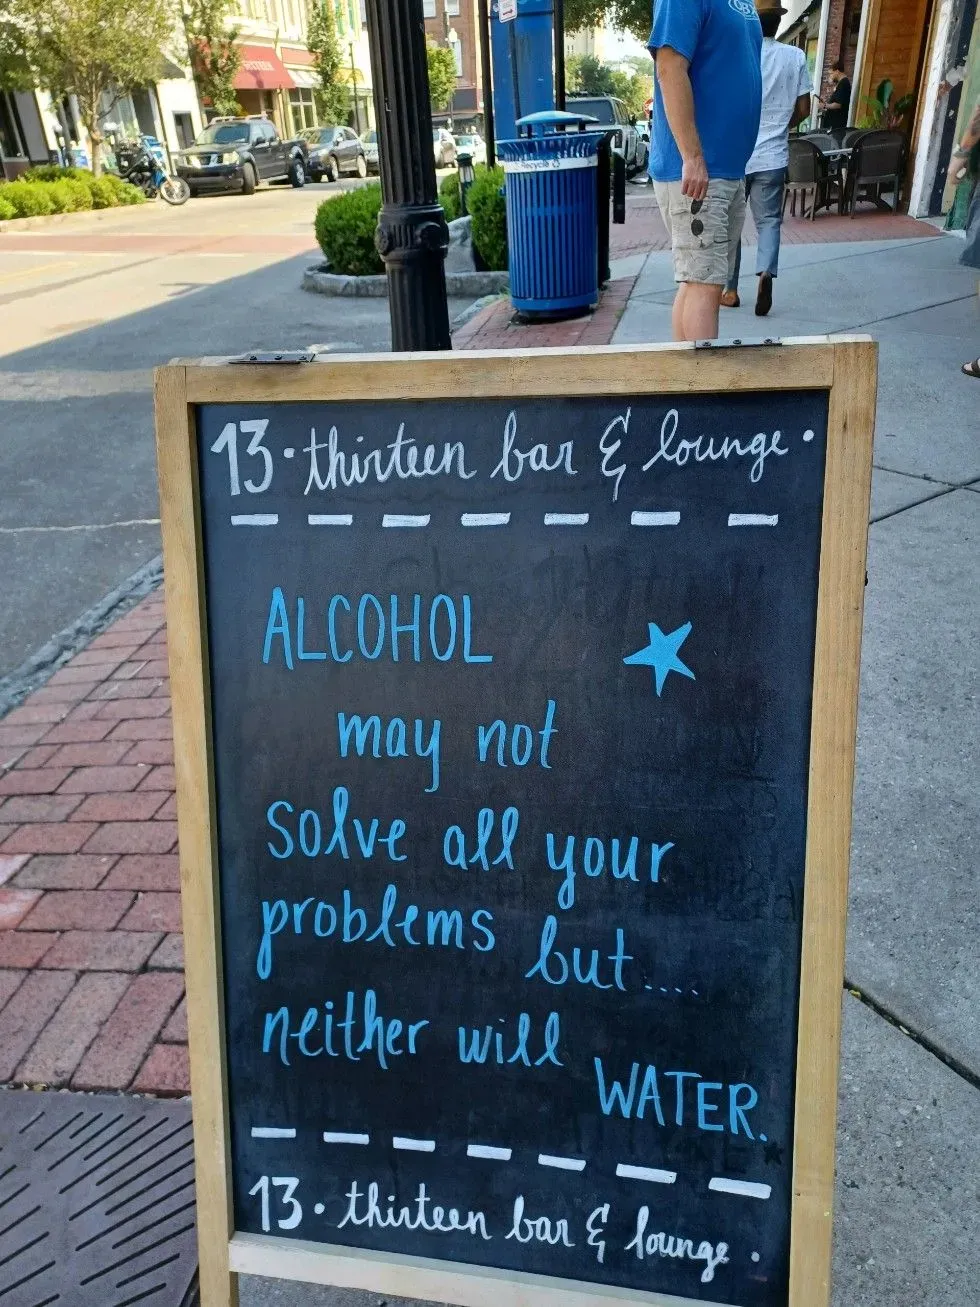 Recycle
13 · thirteen bar & lounge ·
ALCOHOL
may not
solve all your
problems but....
neither will
WATER.
13 · thirteen bar & lounge ·